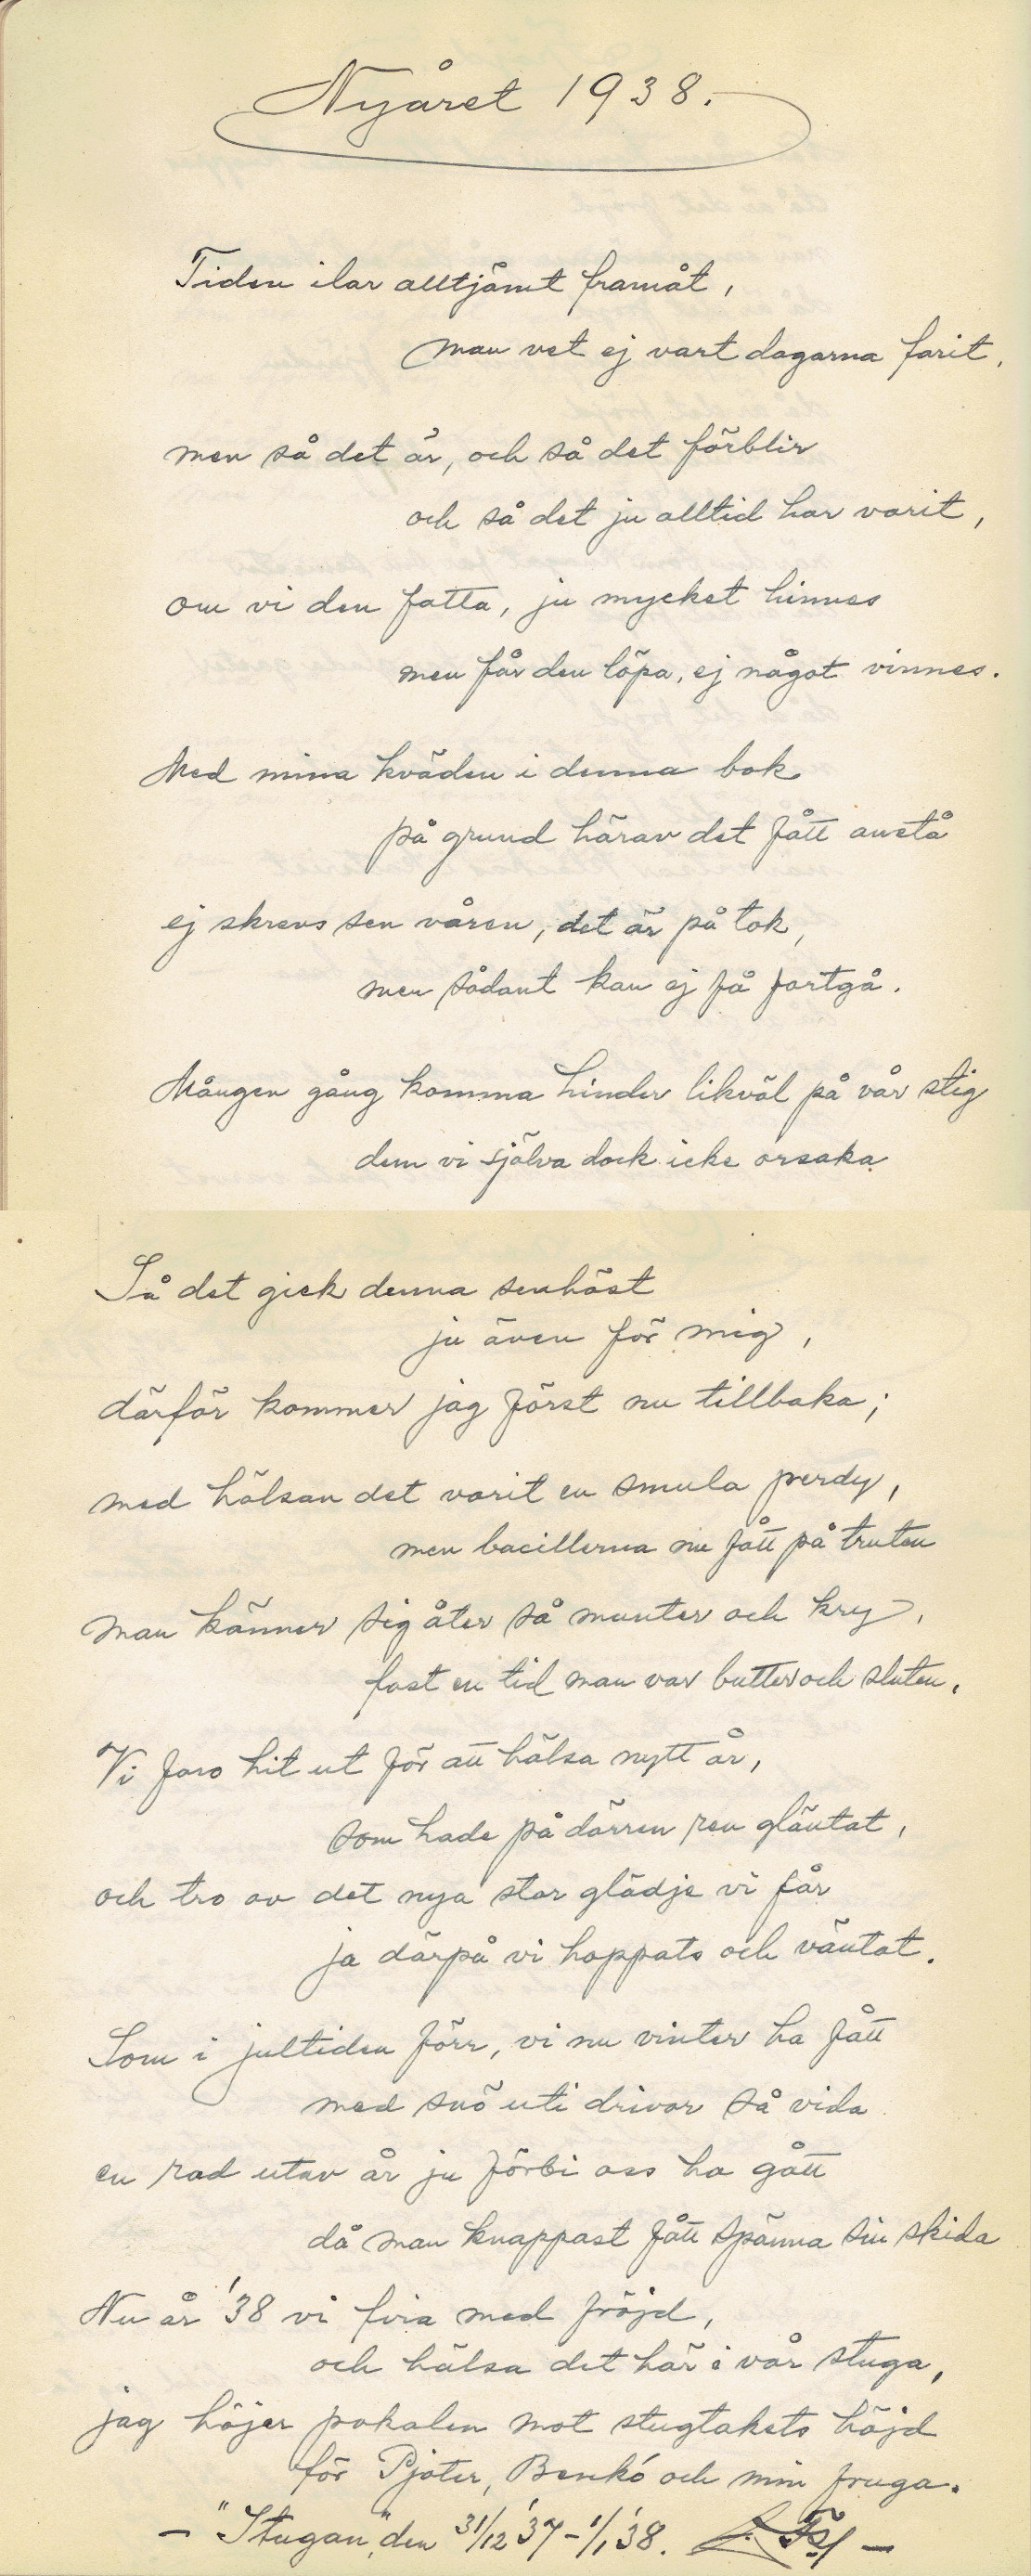 Nyåret 1938.
Tiden ilar alltjämt framåt,
man vet ej vart dagarna farit,
men så det är, och så det förblir
och så det ju alltid har varit,
om vi den fatta, ju mycket hinnes
men får den löpa, ej något vinnes.
Med mina kväden i denna bok
på grund härav det fått anstå
ej skrevs sen våren, det är på tok,
men sådant kan ej få fortgå.
Mången gång komma hinder likväl på vår stig
dem vi själva dock icke orsaka
Så det gick denna senhöst
ju även för mig,
därför kommer jag först nu tillbaka;
med hälsan det varit en smula perdy,
men bacillerna nu fått på truten
man känner sig åter så munter och kry,
fast en tid man var butter och sluten.
Vi faro hit ut för att hälsa nytt år,
som hade på dörren ren gläntat,
och tro av det nya stor glädje vi får
ja därpå vi hoppats och väntat.
Som i jultiden förr, vi nu vinter ha fått
med snö uti drivor så vida
en rad utav år ju förbi oss ha gått
då man knappast fått spänna sin skida
Nu år '38 vi fira med fröjd,
och hälsa det här i vår stuga,
jag höjer pokalen mot stugtakets höjd
för Pjoter, Benkó och min fruga.
– "Stugan" den 31/12 '37 – 1/1 '38. –